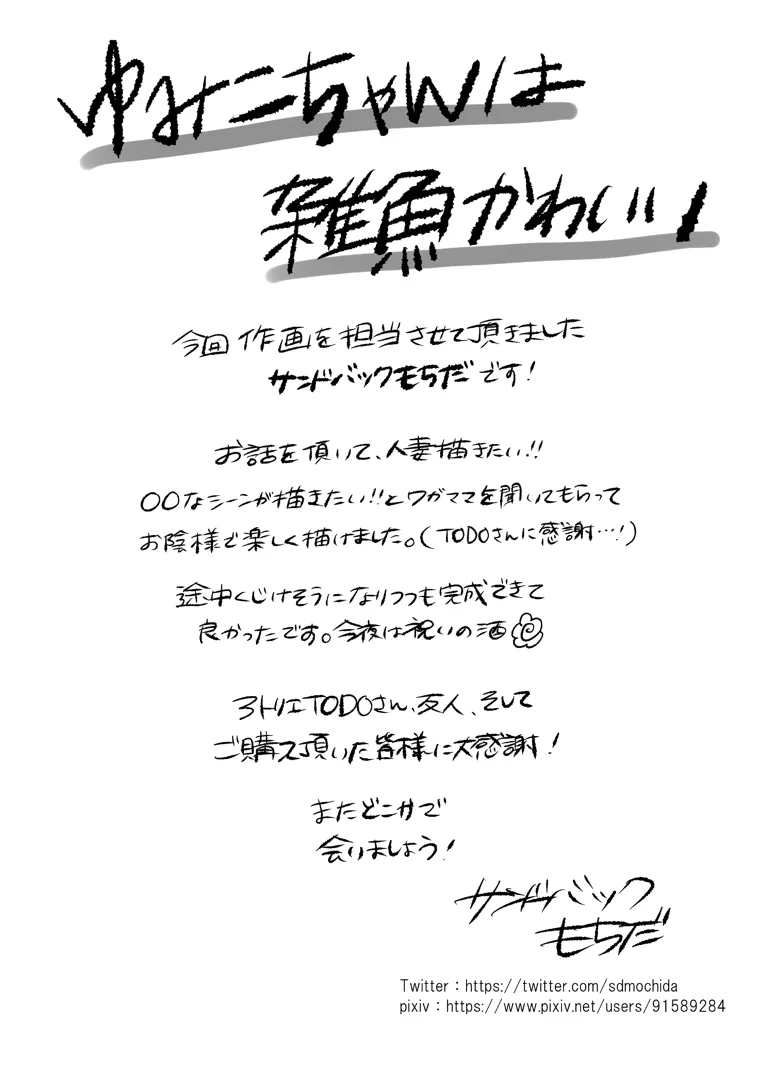 ゆみこちゃんは
雑魚かわいい!
今回作画を担当させて頂きました
サンドバックもちだです!
お話を頂いて、人妻描きたい!!
○○なシーンが描きたい!!とワガママを聞いてもらって
お陰様で楽しく描けました。(TODOさんに感謝…!)
途中くじけそうになりつつも完成できて
良かったです。今夜は祝いの酒
アトリエTODOさん、友人、そして
ご購入頂いた皆様に大感謝!
またどこかで
会いましょう!
サンドバック
もちだ
Twitter:https://twitter.com/sdmochida
pixiv:https://www.pixiv.net/users/91589284